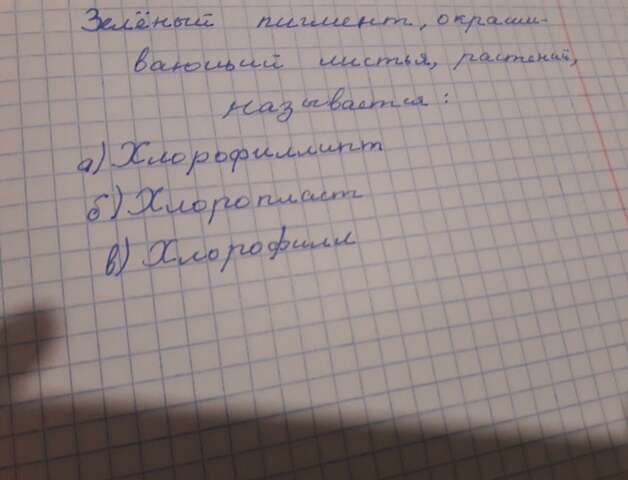 Зелёный пигмент, окраши-
вающий листья, растений,
называется:
а) Хлорофиллипт
б) Хлоропласт
в) Хлорофилл